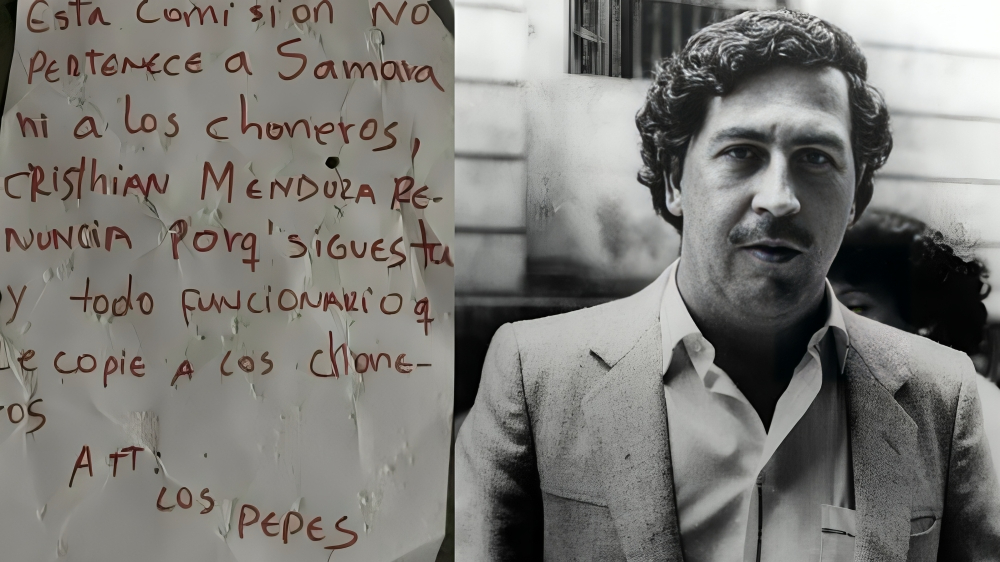 Esta Comision NO
PERTENECE a Samara
ni a los choneros,
CRISthIAN MENDUZA RE-
NUNCIA Porq' SIGUES tu
y todo FUNCIONARIO q
Le copie A Los chone-
ros
ATT:
LOS PEPES